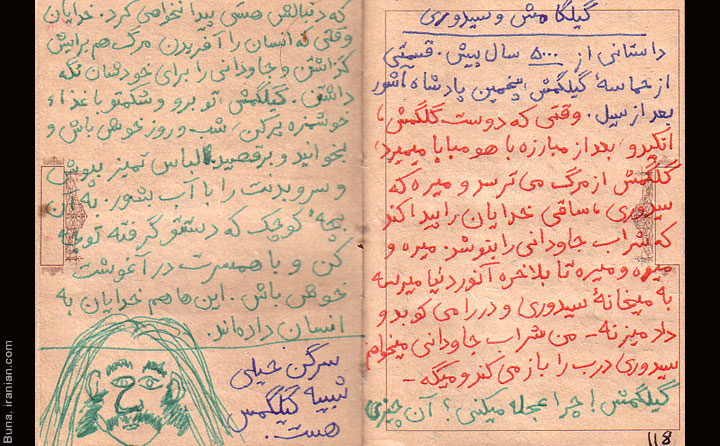 گیلگامش و سیدوری
داستانی از ۵۰۰۰ سال پیش. قسمتی
از حماسهٔ گیلگمش، پنجمین پادشاه اشور
بعد از سیل. وقتی که دوست گلگمش،
انکیدو بعد از مبارزه با هومبابا میمیرد،
گلگمش از مرگ می ترسد و میره که
سیدوری، ساقی خدایان را پیدا کند
که شراب جاودانی را بنوشد. میره و
میره و میره تا بلاخره آنور دنیا میرسه
به میخانهٔ سیدوری و در را می کوبد و
داد میزنه - من شراب جاودانی میخوام
سیدوری درب را باز می کند و میگه -
گیلگمش! چرا عجله میکنی؟ آن چیزی
118
که دنبالش هستی پیدا نخواهی کرد. خدایان
وقتی که انسان را آفریدن مرگ هم برایش
گذاشتن و جاودانی را برای خودشان نگه
داشتن. گیلگمش، تو برو و شکمتو با غذاء
خوشمزه پر کن، شب و روز خوش باش و
بخوانید و برقصید. لباس تمیز بپوش
و سر و بدنت را با آب بشور. به آن
بچهٔ کوچک که دستتو گرفته توجه
کن و با همسرت در آغوشت
خوش باش. این ها هم خدایان به
انسان داده اند.
سرگن خیلی
شبیه گیلگمش
هست.
Buna, iranian.com